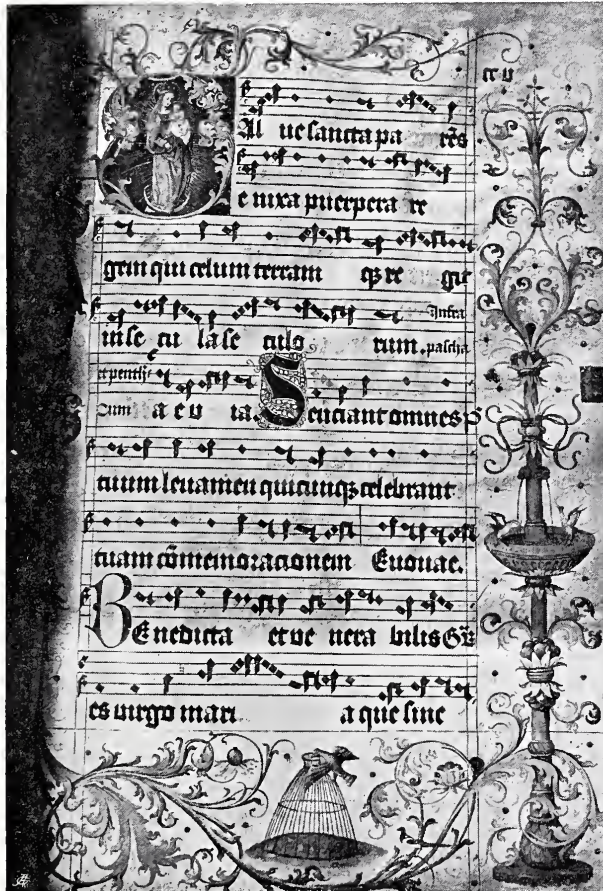 SAl ue sancta pa rēs
e nixa puerpera re
gem qui celum terram qȝ re git
in se cu la se culo rum. Infra pascha
et penth cum a e v ia. Senciant omnes p
tuum leuamen quicunqȝ celebrant
tuam cōmemoracionem Euouae.
BEnedicta et ue nera bilis
es virgo mari a que sine